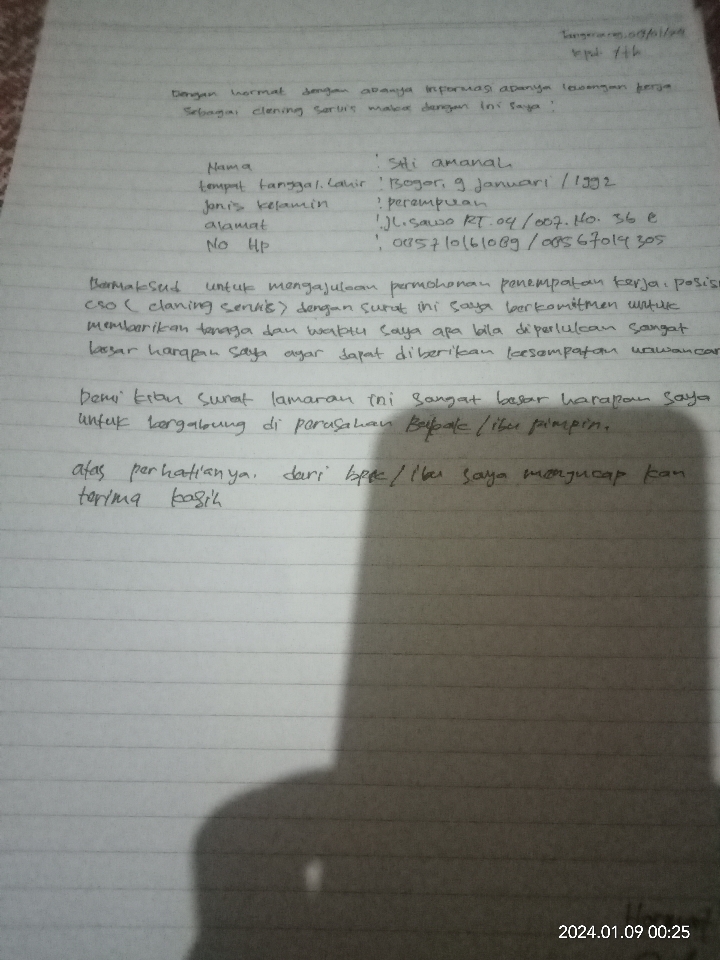 Kpd. Yth
Dengan hormat dengan adanya informasi adanya lowongan kerja
Sebagai clening servis maka dengan ini saya :
Nama : Siti amanah
tempat tanggal. Lahir : Bogor, 9 Januari / 1992
Jenis kelamin : perempuan
alamat : JL. sawo RT. 04 / 007. No. 36 E
No Hp :
Bermaksud untuk mengajukan permohonan penempatan kerja. posisi
CSO ( claning servis ) dengan surat ini saya berkomitmen untuk
memberikan tenaga dan waktu saya apa bila diperlukan sangat
besar harapan saya agar dapat diberikan kesempatan wawancar
Demi kian surat lamaran ini sangat besar harapan saya
untuk bergabung di perusahan Bapak / ibu pimpin.
atas perhatianya. dari bpk / ibu saya mengucap kan
terima kasih
Hormat
2024.01.09 00:25